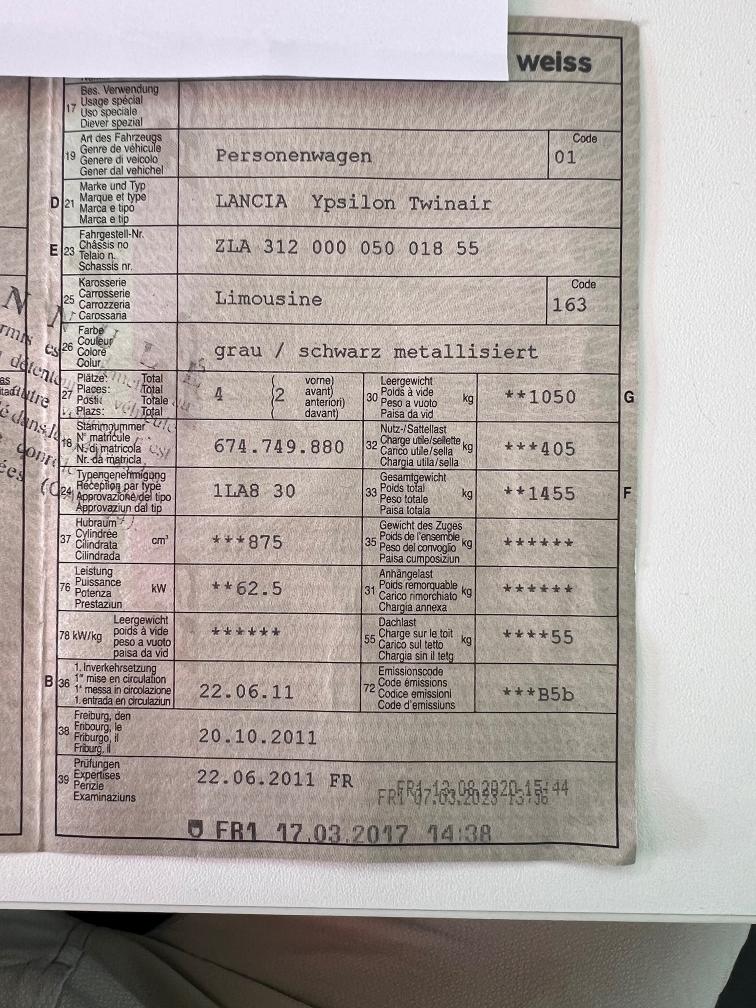 weiss
17 Bes. Verwendung
Usage spécial
Uso speciale
Diever spezial
19 Art des Fahrzeugs
Genre de véhicule
Genere di veicolo
Gener dal vehichel
Personenwagen
Code
01
D 21 Marke und Typ
Marque et type
Marca e tipo
Marca e tip
LANCIA Ypsilon Twinair
E 23 Fahrgestell-Nr.
Châssis no
Telaio n.
Schassis nr.
ZLA 312 000 050 018 55
25 Karosserie
Carrosserie
Carrozzeria
Carossaria
Limousine
Code
163
26 Farbe
Couleur
Colore
Colur
grau / schwarz metallisiert
27 Plätze: Total
Places: Total
Posti: Totale
Plazs: Total
4 (2 vorne)
avant)
anteriori)
davant)
30 Leergewicht
Poids à vide
Peso a vuoto
Paisa da vid
kg
**1050
G
18 Stammnummer
N° matricule
N. di matricola
Nr. da matricla
674.749.880
32 Nutz-/Sattellast
Charge utile/sellette
Carico utile/sella
Chargia utila/sella
kg
***405
24 Typengenehmigung
Réception par type
Approvazione del tipo
Approvaziun dal tip
1LA8 30
33 Gesamtgewicht
Poids total
Peso totale
Paisa totala
kg
**1455
F
37 Hubraum
Cylindrée
Cilindrata
Cilindrada
cm³
***875
35 Gewicht des Zuges
Poids de l'ensemble
Peso del convoglio
Paisa cumposiziun
kg
******
76 Leistung
Puissance
Potenza
Prestaziun
kW
**62.5
31 Anhängelast
Poids remorquable
Carico rimorchiato
Chargia annexa
kg
******
78 kW/kg Leergewicht
poids à vide
peso a vuoto
paisa da vid
******
55 Dachlast
Charge sur le toit
Carico sul tetto
Chargia sin il tetg
kg
****55
B 36 1. Inverkehrsetzung
1re mise en circulation
1a messa in circolazione
1. entrada en circulaziun
22.06.11
72 Emissionscode
Code émissions
Codice emissioni
Code d'emissiuns
***B5b
38 Freiburg, den
Fribourg, le
Friburgo, il
Friburg, il
20.10.2011
39 Prüfungen
Expertises
Perizie
Examinaziuns
22.06.2011 FR
FR1 17.03.2017 14:38